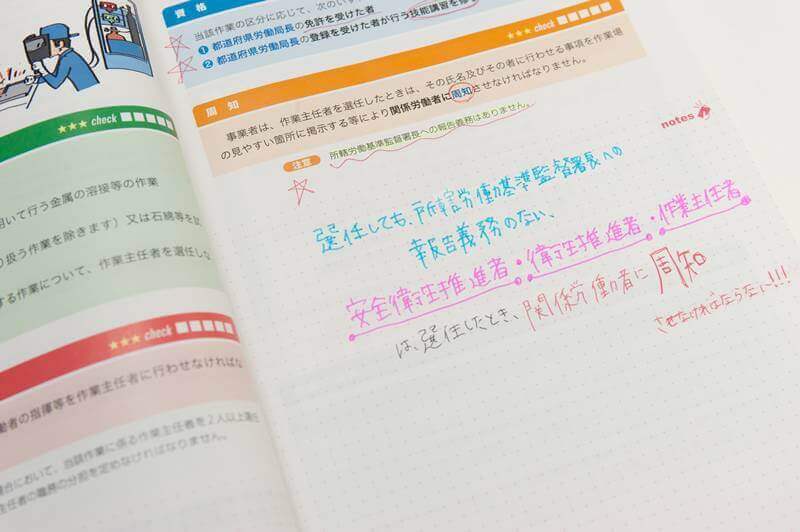 ★★★ check
用いて行う金属の溶接等の作業
り扱う作業を除きます）又は石綿等を試
する作業について、作業主任者を選任しな
★★★ check
働者の指揮等を作業主任者に行わせなければな
場合において、当該作業に係る作業主任者を2人以上選任
主任者の職務の分担を定めなければなりません。
資 格
当該作業の区分に応じて、次のいず
1 都道府県労働局長の免許を受けた者
2 都道府県労働局長の登録を受けた者が行う技能講習を修
★★★ check
周 知
事業者は、作業主任者を選任したときは、その氏名及びその者に行わせる事項を作業場
の見やすい箇所に掲示する等により関係労働者に周知させなければなりません。
注意 所轄労働基準監督署長への報告義務はありません。
notes
選任しても、所轄労働基準監督署長への
報告義務のない、
安全衛生推進者・衛生推進者・作業主任者
は、選任したとき、関係労働者に周知
させなければならない!!!